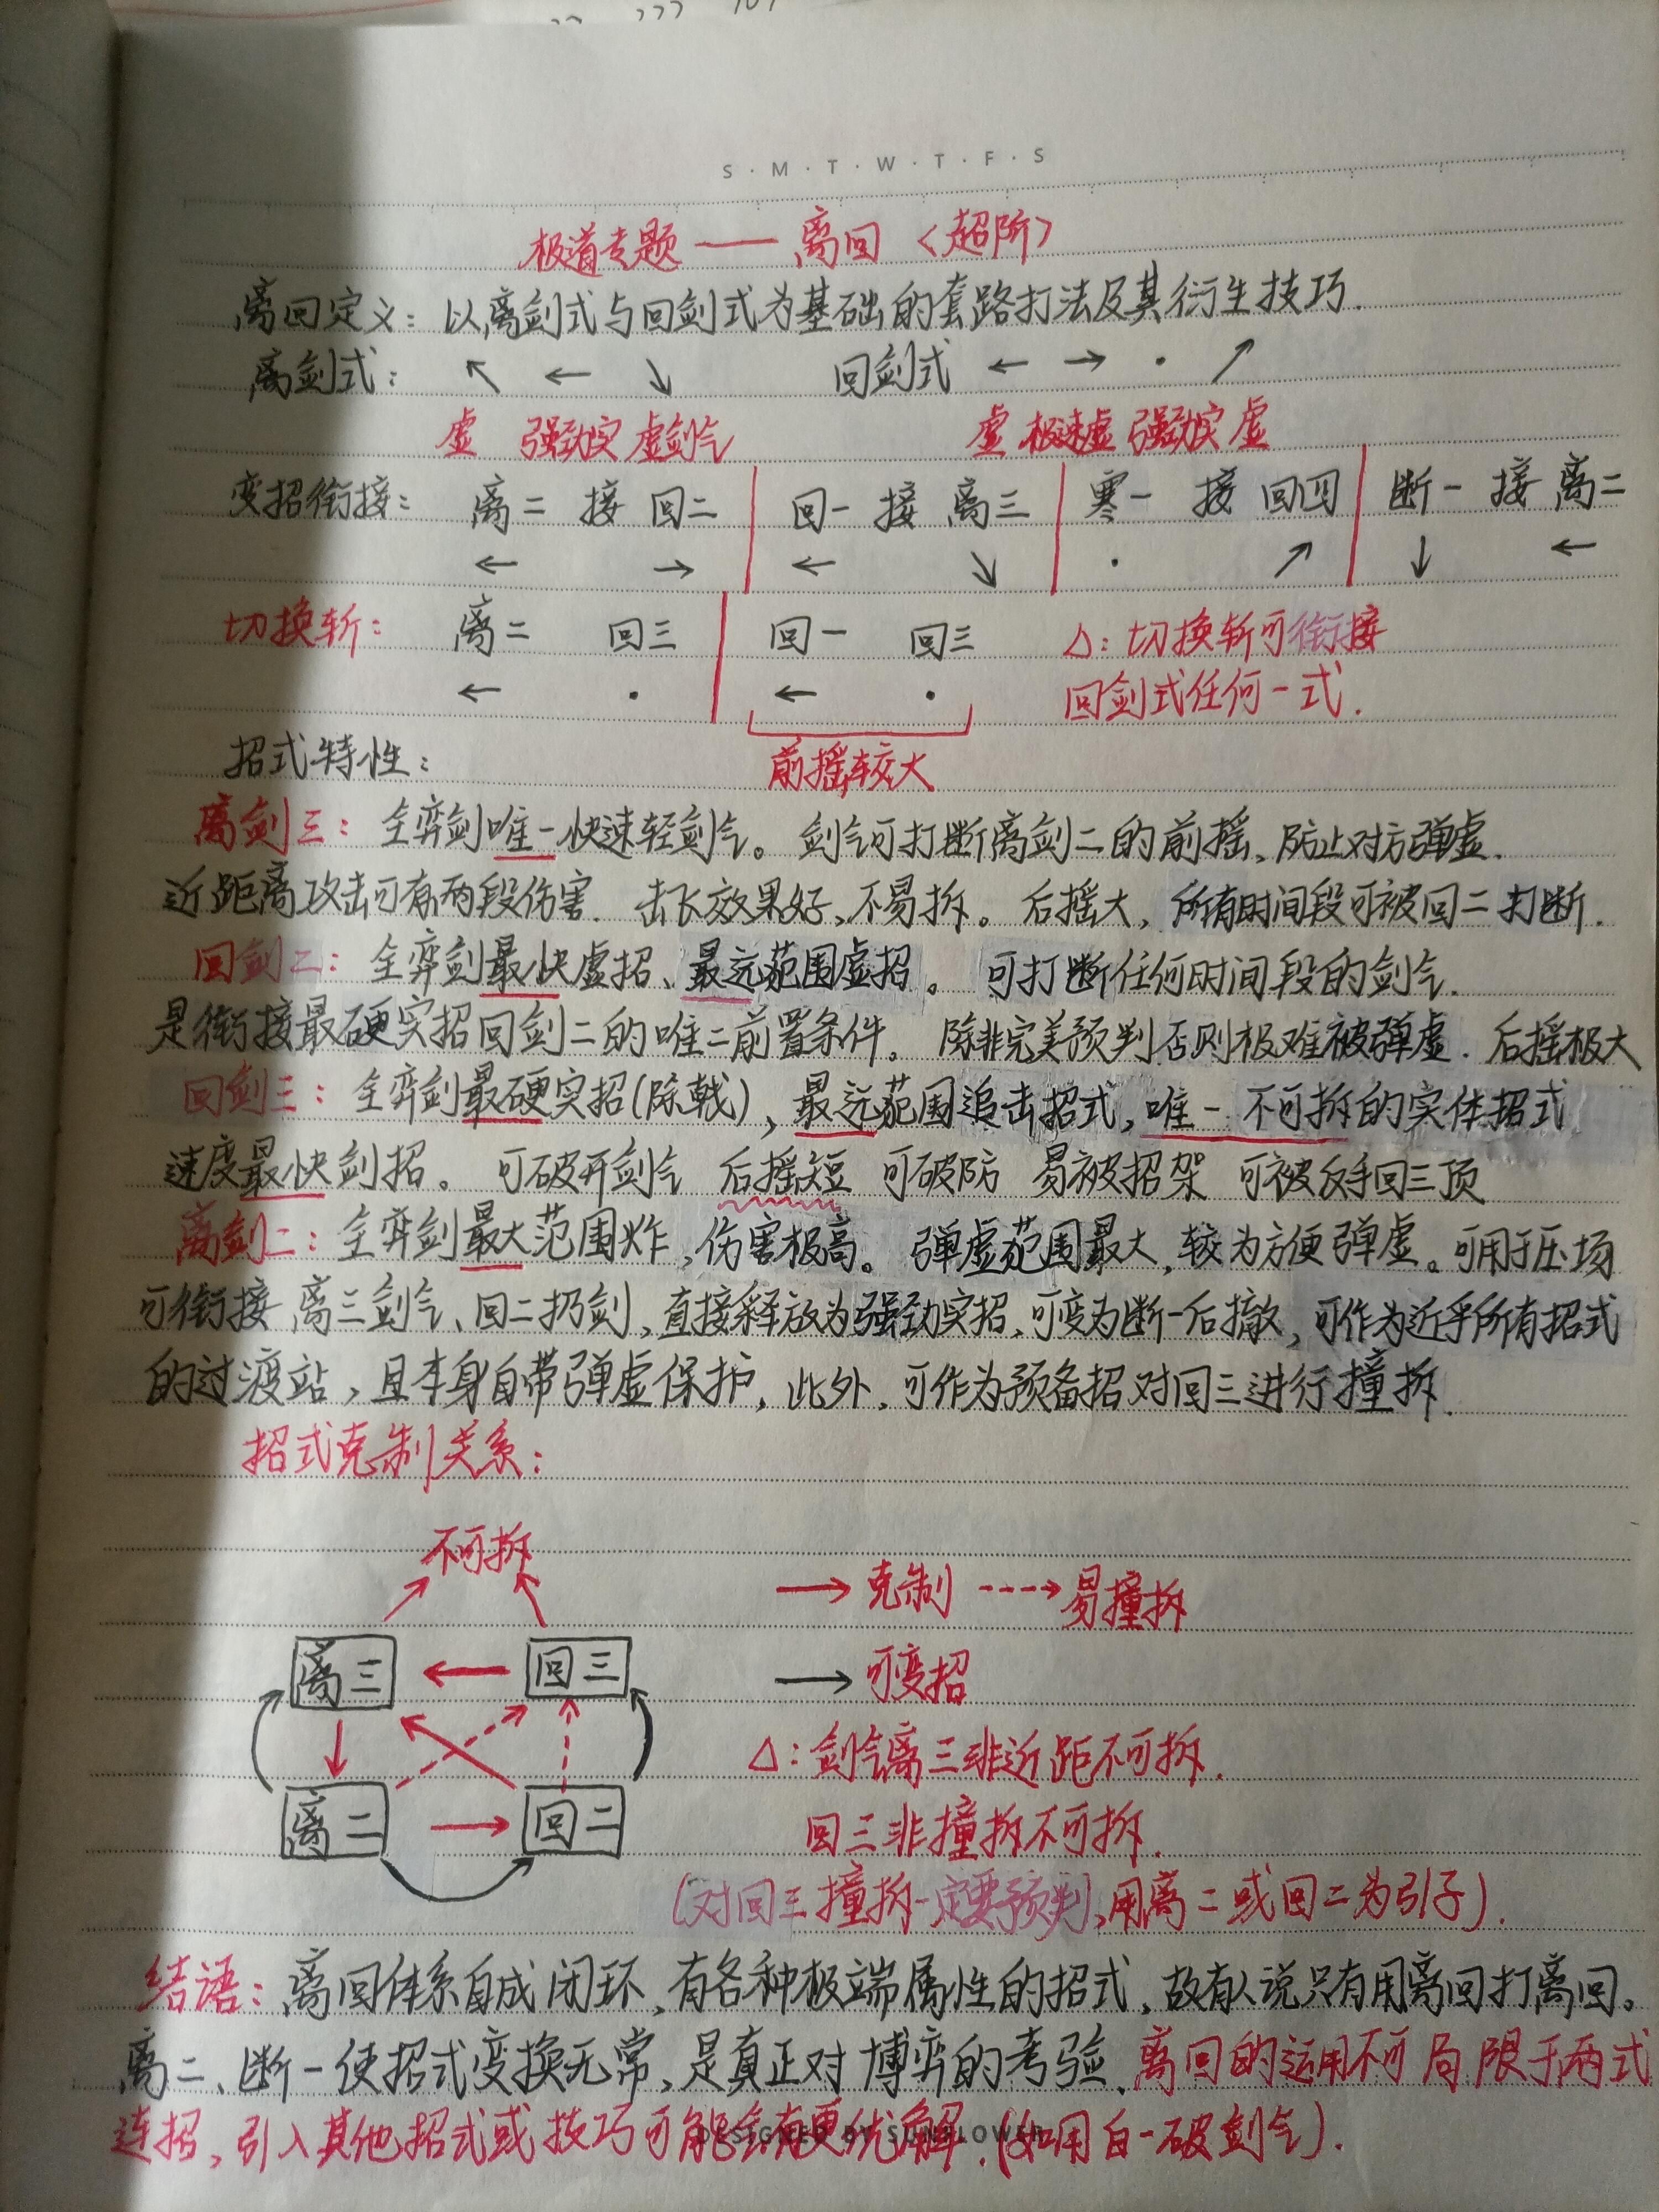 S · M · T · W · T · F · S
极道专题 —— 离回〈超阶〉
离回定义：以离剑式与回剑式为基础的套路打法及其衍生技巧.
离剑式： ↖ ← ↘ 回剑式 ← → · ↗
虚 强劲实 虚剑气 虚 极速虚 强劲实 虚
变招衔接： 离二 接 回二 | 回一 接 离三 | 寒一 接 回四 | 断一 接 离二
← → ← ↘ · ↗ ↓ ←
切换斩： 离二 回三 | 回一 回三 △：切换斩可衔接
← · ← · 回剑式任何一式.
招式特性： 前摇较大
离剑三：全弈剑唯一快速轻剑气。剑气可打断离剑二的前摇、防止对方弹虚.
近距离攻击可有两段伤害. 击飞效果好、不易拆。后摇大，所有时间段可被回二打断.
回剑二：全弈剑最快虚招、最远范围虚招。可打断任何时间段的剑气.
是衔接最硬实招回剑二的唯二前置条件。除非完美预判否则极难被弹虚. 后摇极大
回剑三：全弈剑最硬实招(除戟)，最远范围追击招式，唯一不可拆的实体招式
速度最快剑招。可破开剑气 后摇短 可破防 易被招架 可被反手回三顶
离剑二：全弈剑最大范围炸，伤害极高。弹虚范围最大，较为方便弹虚。可用于压场
可衔接 离三剑气、回二扔剑，直接释放为强劲实招，可变为断一后撤，可作为近乎所有招式
的过渡站，且本身自带弹虚保护，此外，可作为预备招对回三进行撞拆.
招式克制关系：
不可拆
→ 克制 ⇢ 易撞拆
离三 回三
→ 可变招
△：剑气离三非近距不可拆.
离二 回二
回三非撞拆不可拆.
(对回三撞拆一定要预判，用离二或回二为引子).
结语：离回体系自成闭环，有各种极端属性的招式，故有人说只有用离回打离回。
离二、断一使招式变换无常，是真正对博弈的考验. 离回的运用不可局限于两式
连招，引入其他招式或技巧可能会有更优解.(如用白一破剑气).
DESIGNED BY SUNFLOWER